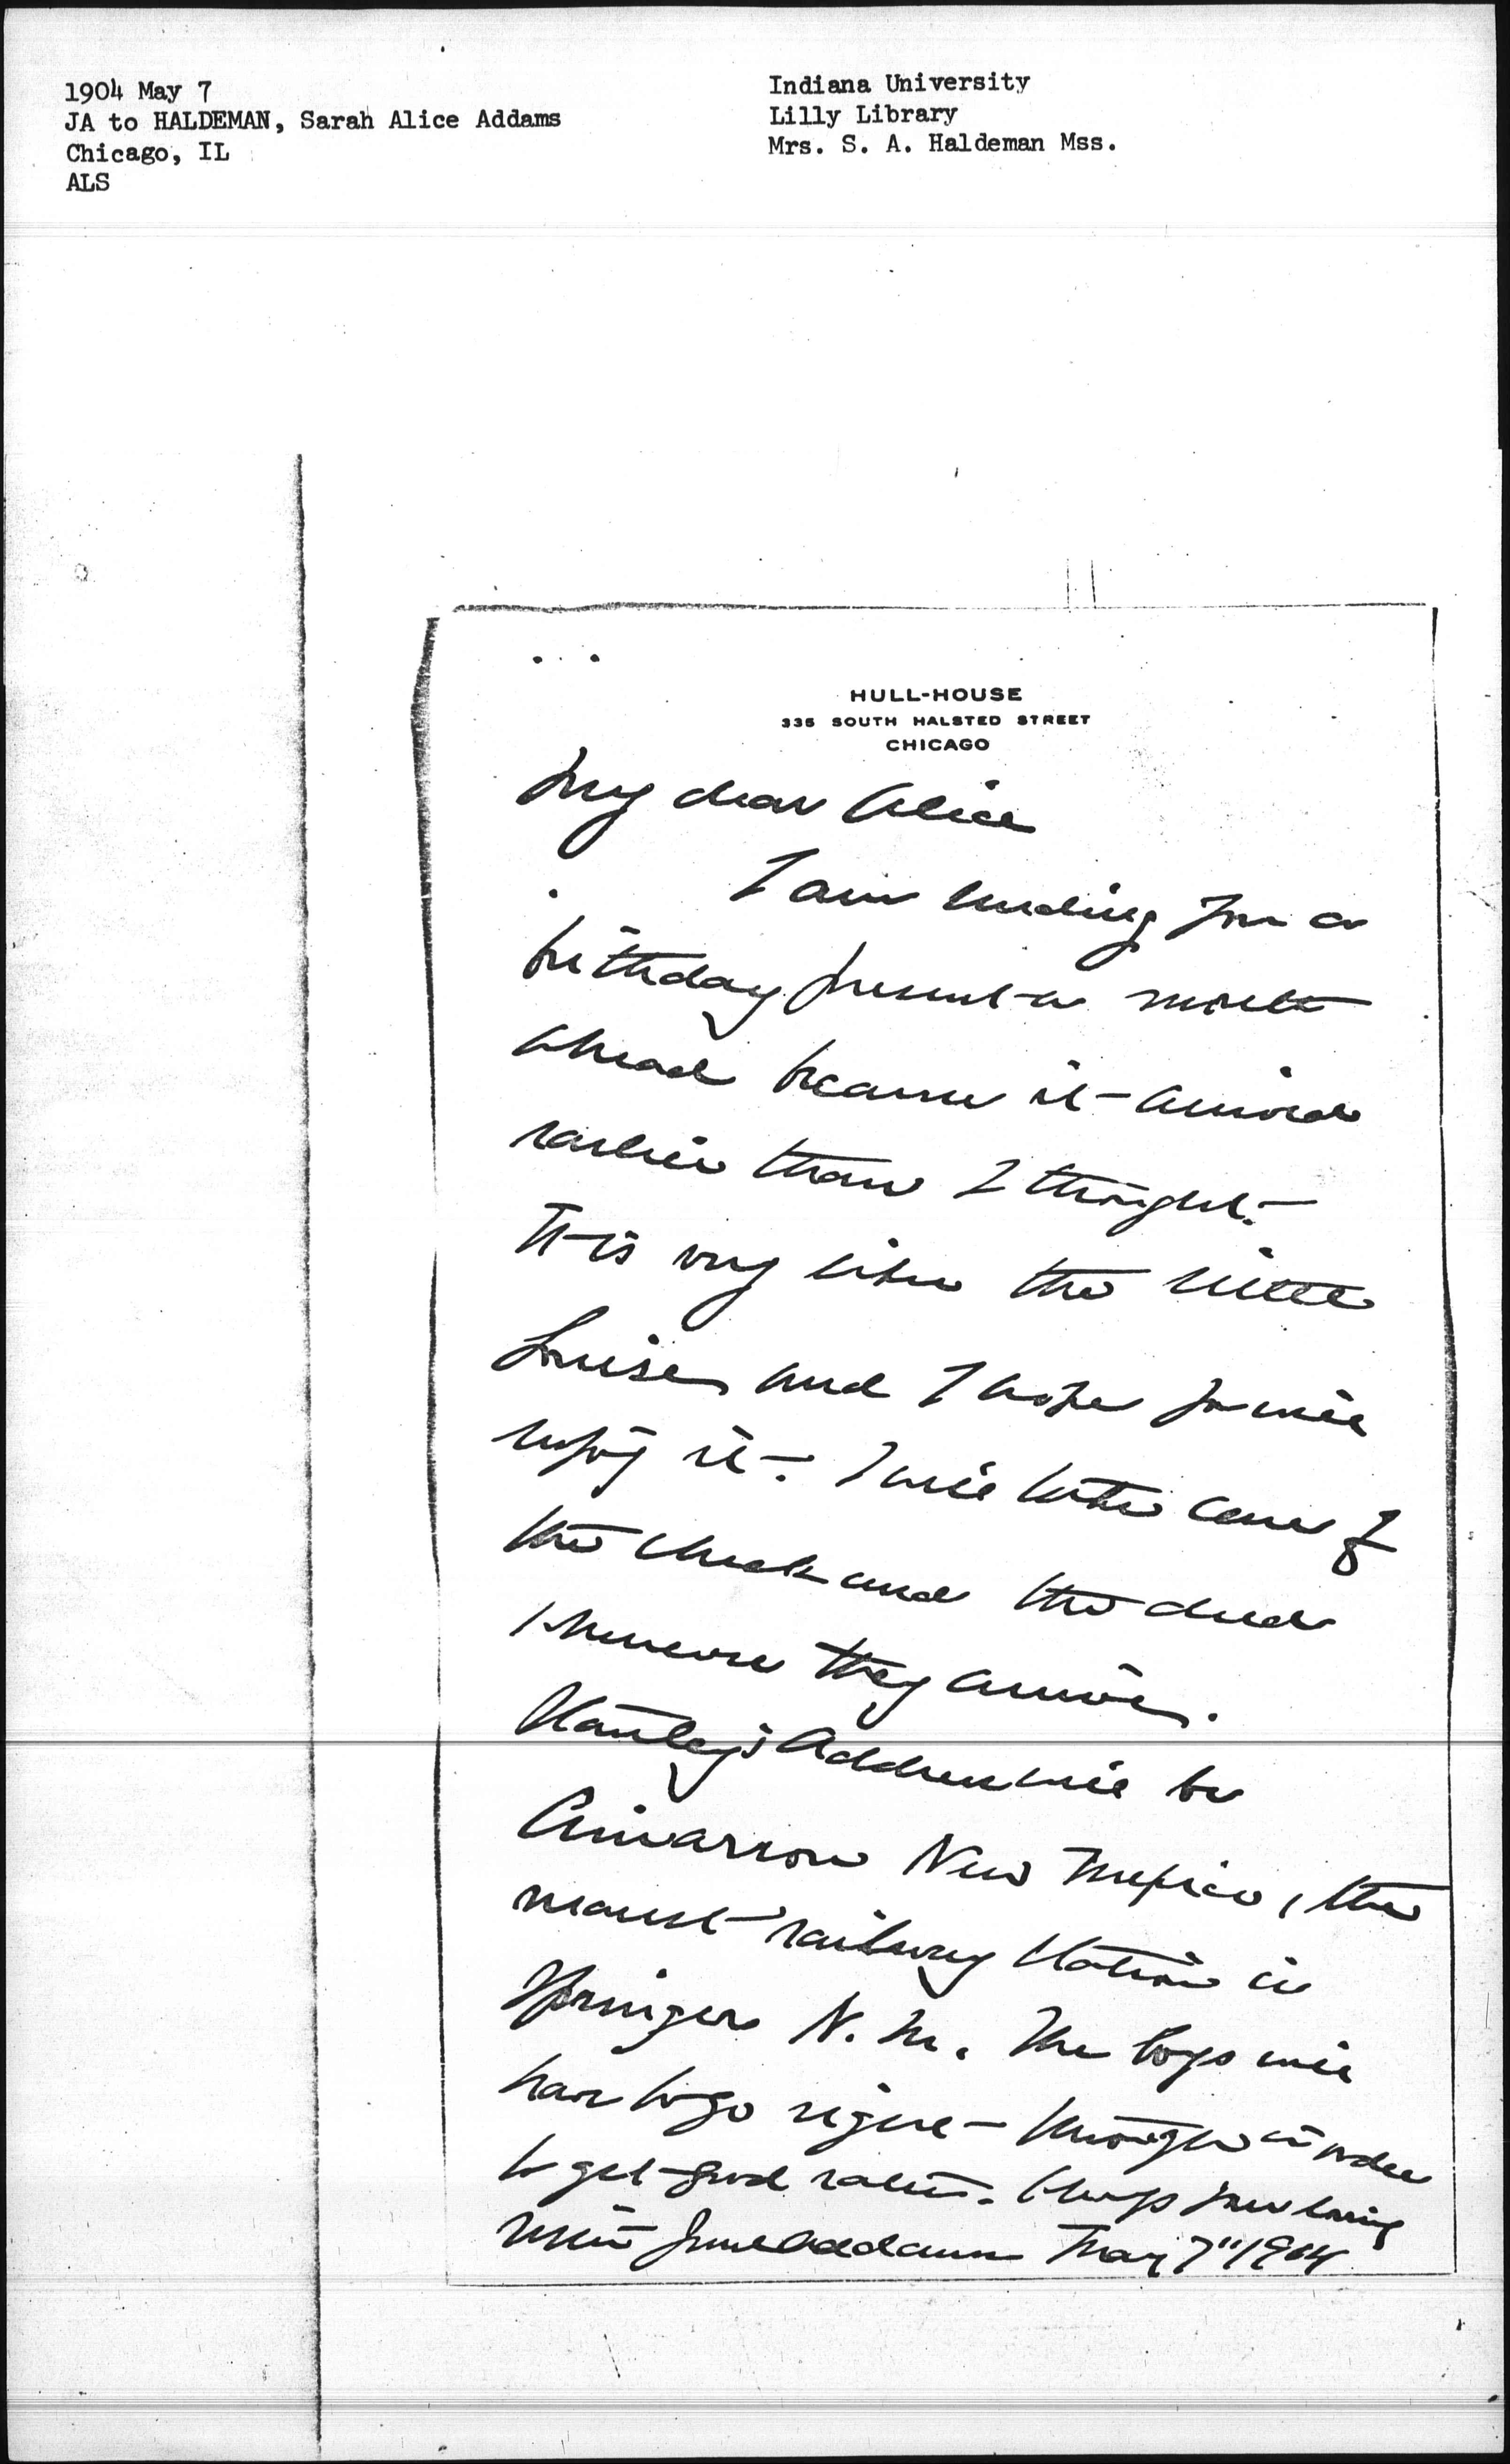 1904 May 7
JA to HALDEMAN, Sarah Alice Addams
Chicago, IL
ALS
Indiana University
Lilly Library
Mrs. S. A. Haldeman Mss.
HULL-HOUSE
335 SOUTH HALSTED STREET
CHICAGO
My dear Alice
I am sending you a
birthday present a month
ahead because it arrived
earlier than I thought.
It is very like the little
Louise and I hope you will
enjoy it. I will take care of
the check and the deed
whenever they arrive.
Stanley's address will be
Cimarron New Mexico, the
nearest railway station is
Springer N. M. The boys will
have to go right through in order
to get good rates. Always your loving
sister Jane Addams May 7" 1904